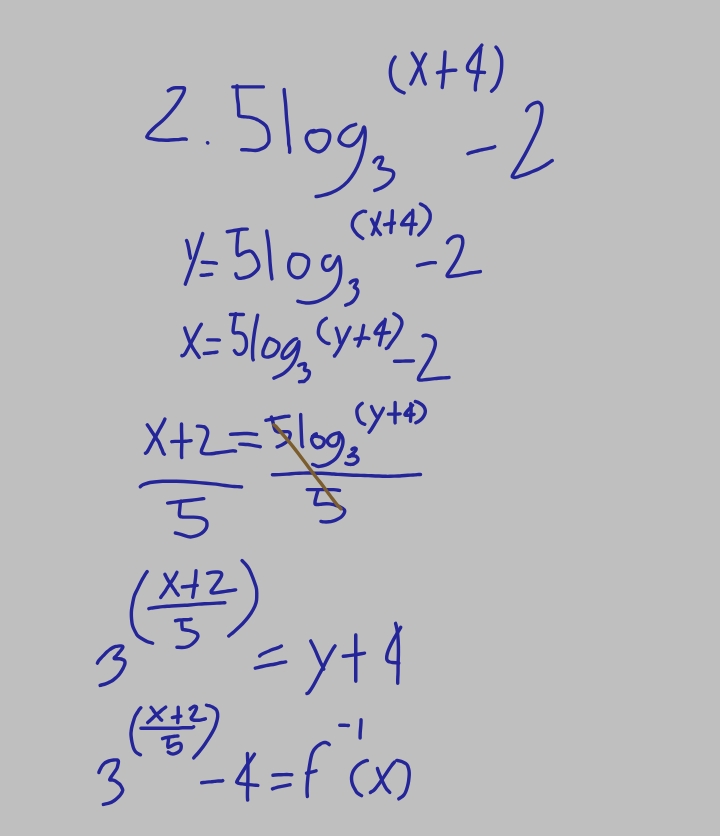 2. 5log₃(x+4) - 2
y = 5log₃(x+4) - 2
x = 5log₃(y+4) - 2
(x+2)/5 = 5log₃(y+4)/5
3^((x+2)/5) = y+4
3^((x+2)/5) - 4 = f⁻¹(x)